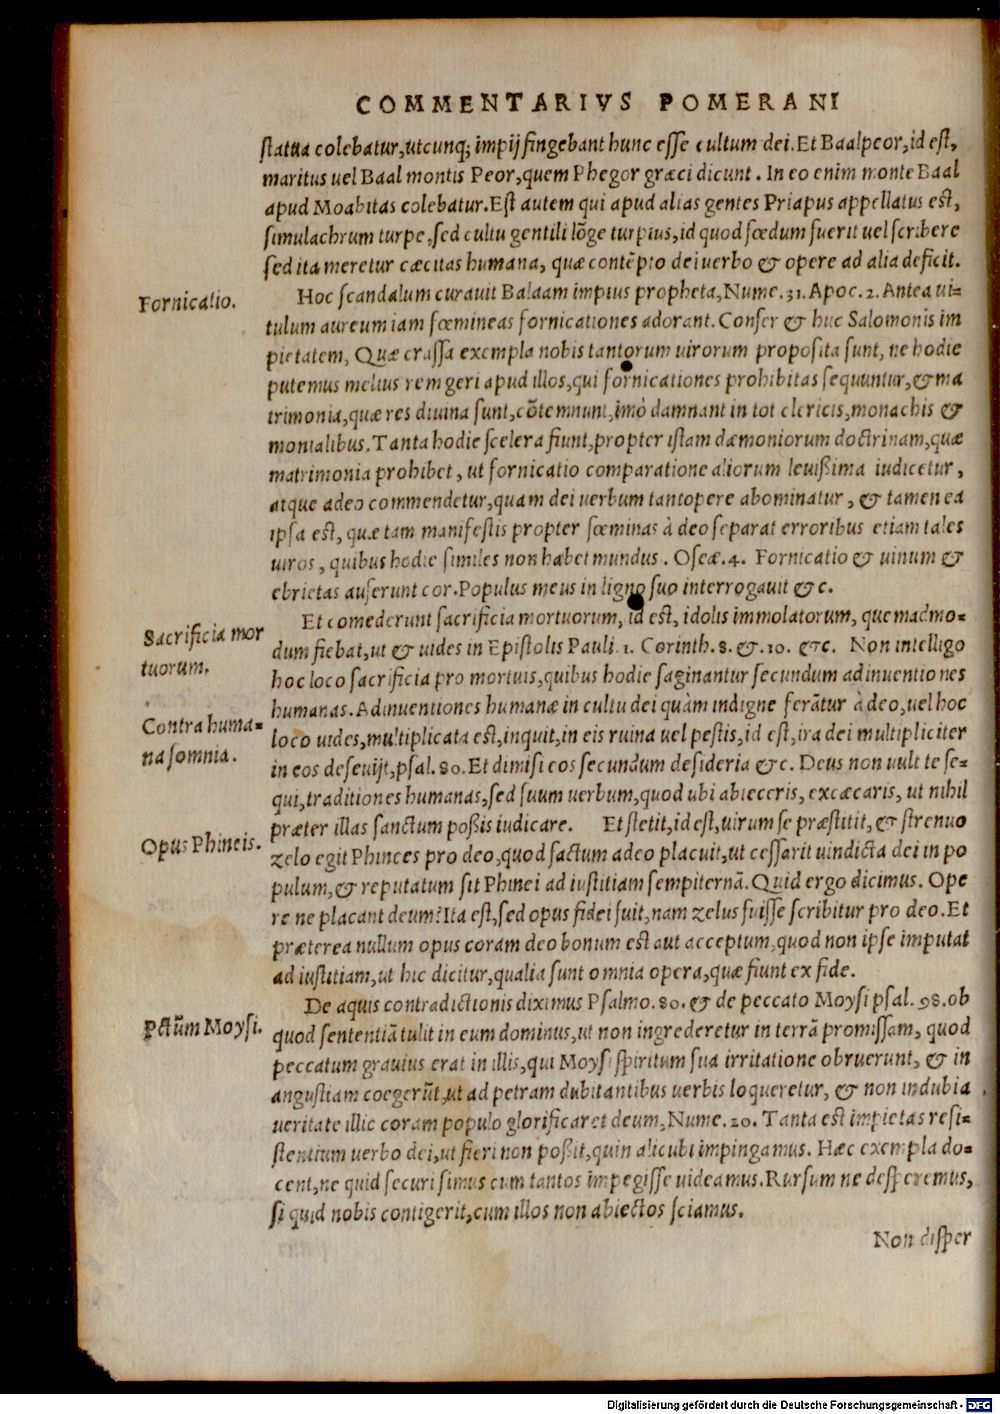 COMMENTARIVS POMERANI
statua colebatur, utcunq; impij fingebant hunc esse cultum dei. Et Baalpeor, id est,
maritus uel Baal montis Peor, quem Phegor græci dicunt. In eo enim monte Baal
apud Moabitas colebatur. Est autem qui apud alias gentes Priapus appellatus est,
simulachrum turpe, sed cultu gentili lõge turpius, id quod fœdum fuerit uel scribere
sed ita meretur cæcitas humana, quæ contẽpto dei uerbo & opere ad alia deficit.
Fornicatio.
Hoc scandalum curauit Balaam impius propheta, Nume. 31. Apoc. 2. Antea ui=
tulum aureum iam fœmineas fornicationes adorant. Confer & huc Salomonis im
pietatem, Quæ crassa exempla nobis tantorum uirorum proposita sunt, ne hodie
putemus melius rem geri apud illos, qui fornicationes prohibitas sequuntur, & ma
trimonia, quæ res diuina sunt, cõtemnunt, imò damnant in tot clericis, monachis &
monialibus. Tanta hodie scelera fiunt, propter istam dæmoniorum doctrinam, quæ
matrimonia prohibet, ut fornicatio comparatione aliorum leuißima iudicetur,
atque adeo commendetur, quam dei uerbum tantopere abominatur, & tamen ea
ipsa est, quæ tam manifestis propter fœminas à deo separat erroribus etiam tales
uiros, quibus hodie similes non habet mundus. Oseæ. 4. Fornicatio & uinum &
ebrietas auferunt cor. Populus meus in ligno suo interrogauit &c.
Sacrificia mor
tuorum.
Et comederunt sacrificia mortuorum, id est, idolis immolatorum, quemadmo=
dum fiebat, ut & uides in Epistolis Pauli. 1. Corinth. 8. &. 10. &c. Non intelligo
hoc loco sacrificia pro mortuis, quibus hodie saginantur secundum adinuentiones
Contra huma=
na somnia.
humanas. Adinuentiones humanæ in cultu dei quàm indigne ferãtur à deo, uel hoc
loco uides, multiplicata est, inquit, in eis ruina uel pestis, id est, ira dei multipliciter
in eos deseuijt, psal. 80. Et dimisi eos secundum desideria &c. Deus non uult te se=
qui, traditiones humanas, sed suum uerbum, quod ubi abieceris, excæcaris, ut nihil
præter illas sanctum poßis iudicare. Et stetit, id est, uirum se præstitit, & strenuo
Opus Phineis.
zelo egit Phinees pro deo, quod factum adeo placuit, ut cessarit uindicta dei in po
pulum, & reputatum sit Phinei ad iustitiam sempiternã. Quid ergo dicimus. Ope
re ne placant deum? Ita est, sed opus fidei fuit, nam zelus fuisse scribitur pro deo. Et
præterea nullum opus coram deo bonum est aut acceptum, quod non ipse imputat
ad iustitiam, ut hic dicitur, qualia sunt omnia opera, quæ fiunt ex fide.
Pctũm Moysi.
De aquis contradictionis diximus Psalmo. 80. & de peccato Moysi psal. 98. ob
quod sententiã tulit in eum dominus, ut non ingrederetur in terrã promissam, quod
peccatum grauius erat in illis, qui Moysi spiritum sua irritatione obruerunt, & in
angustiam coegerũt, ut ad petram dubitantibus uerbis loqueretur, & non indubia
ueritate illic coram populo glorificaret deum, Nume. 20. Tanta est impietas resi=
stentium uerbo dei, ut fieri non poßit, quin alicubi impingamus. Hæc exempla do=
cent, ne quid securi simus cum tantos impegisse uideamus. Rursum ne desperemus,
si quid nobis contigerit, cum illos non abiectos sciamus.
Non disper
Digitalisierung gefördert durch die Deutsche Forschungsgemeinschaft - DFG